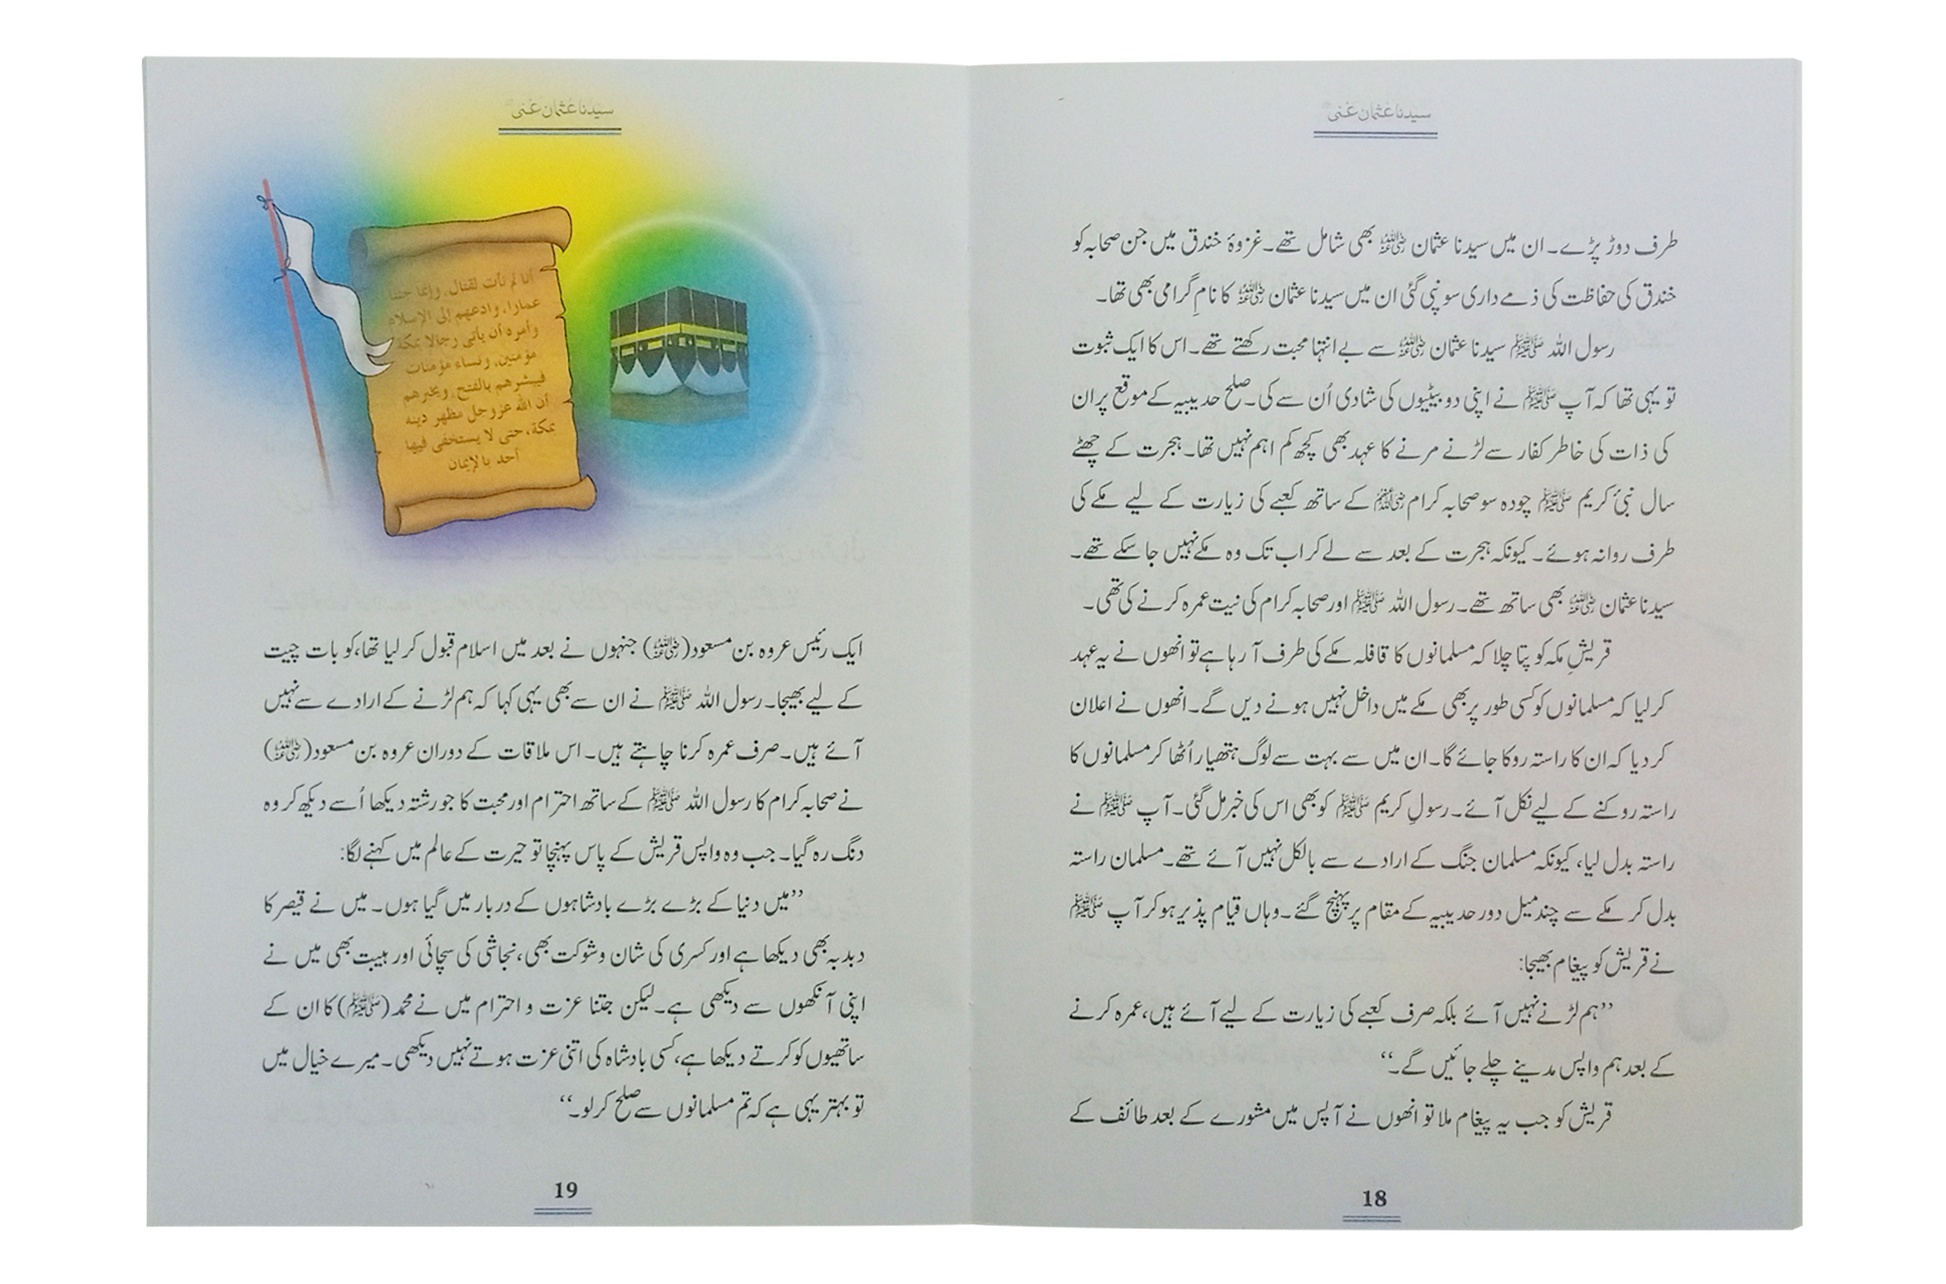 سیدنا عثمان غنی
طرف دوڑ پڑے۔ ان میں سیدنا عثمان ﷜ بھی شامل تھے۔ غزوۂ خندق میں جن صحابہ کو
خندق کی حفاظت کی ذمے داری سونپی گئی ان میں سیدنا عثمان ﷜ کا نامِ گرامی بھی تھا۔
رسول اللہ ﷺ سیدنا عثمان ﷜ سے بے انتہا محبت رکھتے تھے۔ اس کا ایک ثبوت
تو یہی تھا کہ آپ ﷺ نے اپنی دو بیٹیوں کی شادی اُن سے کی۔ صلح حدیبیہ کے موقع پر ان
کی ذات کی خاطر کفار سے لڑنے مرنے کا عہد بھی کچھ کم اہم نہیں تھا۔ ہجرت کے چھٹے
سال نبیٔ کریم ﷺ چودہ سو صحابہ کرام ﷡ کے ساتھ کعبے کی زیارت کے لیے مکے کی
طرف روانہ ہوئے۔ کیونکہ ہجرت کے بعد سے لے کر اب تک وہ مکے نہیں جا سکے تھے۔
سیدنا عثمان ﷜ بھی ساتھ تھے۔ رسول اللہ ﷺ اور صحابہ کرام کی نیت عمرہ کرنے کی تھی۔
قریشِ مکہ کو پتا چلا کہ مسلمانوں کا قافلہ مکے کی طرف آ رہا ہے تو انھوں نے یہ عہد
کر لیا کہ مسلمانوں کو کسی طور پر بھی مکے میں داخل نہیں ہونے دیں گے۔ انھوں نے اعلان
کر دیا کہ ان کا راستہ روکا جائے گا۔ ان میں سے بہت سے لوگ ہتھیار اُٹھا کر مسلمانوں کا
راستہ روکنے کے لیے نکل آئے۔ رسولِ کریم ﷺ کو بھی اس کی خبر مل گئی۔ آپ ﷺ نے
راستہ بدل لیا، کیونکہ مسلمان جنگ کے ارادے سے بالکل نہیں آئے تھے۔ مسلمان راستہ
بدل کر مکے سے چند میل دور حدیبیہ کے مقام پر پہنچ گئے۔ وہاں قیام پذیر ہو کر آپ ﷺ
نے قریش کو پیغام بھیجا:
’’ہم لڑنے نہیں آئے بلکہ صرف کعبے کی زیارت کے لیے آئے ہیں، عمرہ کرنے
کے بعد ہم واپس مدینے چلے جائیں گے۔‘‘
قریش کو جب یہ پیغام ملا تو انھوں نے آپس میں مشورے کے بعد طائف کے
18
سیدنا عثمان غنی
أنا لم نأت لقتال، وإنما جئنا
عمارا، وادعهم إلى الإسلام
وأمره أن يأتى رجالا بمكة
مؤمنين، ونساء مؤمنات
فيبشرهم بالفتح، ويخبرهم
أن الله عزوجل مظهر دينه
بمكة، حتى لا يستخفى فيها
أحد بالإيمان
ایک رئیس عروہ بن مسعود(﷜) جنہوں نے بعد میں اسلام قبول کر لیا تھا، کو بات چیت
کے لیے بھیجا۔ رسول اللہ ﷺ نے ان سے بھی یہی کہا کہ ہم لڑنے کے ارادے سے نہیں
آئے ہیں۔ صرف عمرہ کرنا چاہتے ہیں۔ اس ملاقات کے دوران عروہ بن مسعود(﷜)
نے صحابہ کرام کا رسول اللہ ﷺ کے ساتھ احترام اور محبت کا جو رشتہ دیکھا اُسے دیکھ کر وہ
دنگ رہ گیا۔ جب وہ واپس قریش کے پاس پہنچا تو حیرت کے عالم میں کہنے لگا:
’’میں دنیا کے بڑے بڑے بادشاہوں کے دربار میں گیا ہوں۔ میں نے قیصر کا
دبدبہ بھی دیکھا ہے اور کسری کی شان و شوکت بھی، نجاشی کی سچائی اور ہیبت بھی میں نے
اپنی آنکھوں سے دیکھی ہے۔ لیکن جتنا عزت و احترام میں نے محمد (ﷺ) کا ان کے
ساتھیوں کو کرتے دیکھا ہے، کسی بادشاہ کی اتنی عزت ہوتے نہیں دیکھی۔ میرے خیال میں
تو بہتر یہی ہے کہ تم مسلمانوں سے صلح کر لو۔‘‘
19